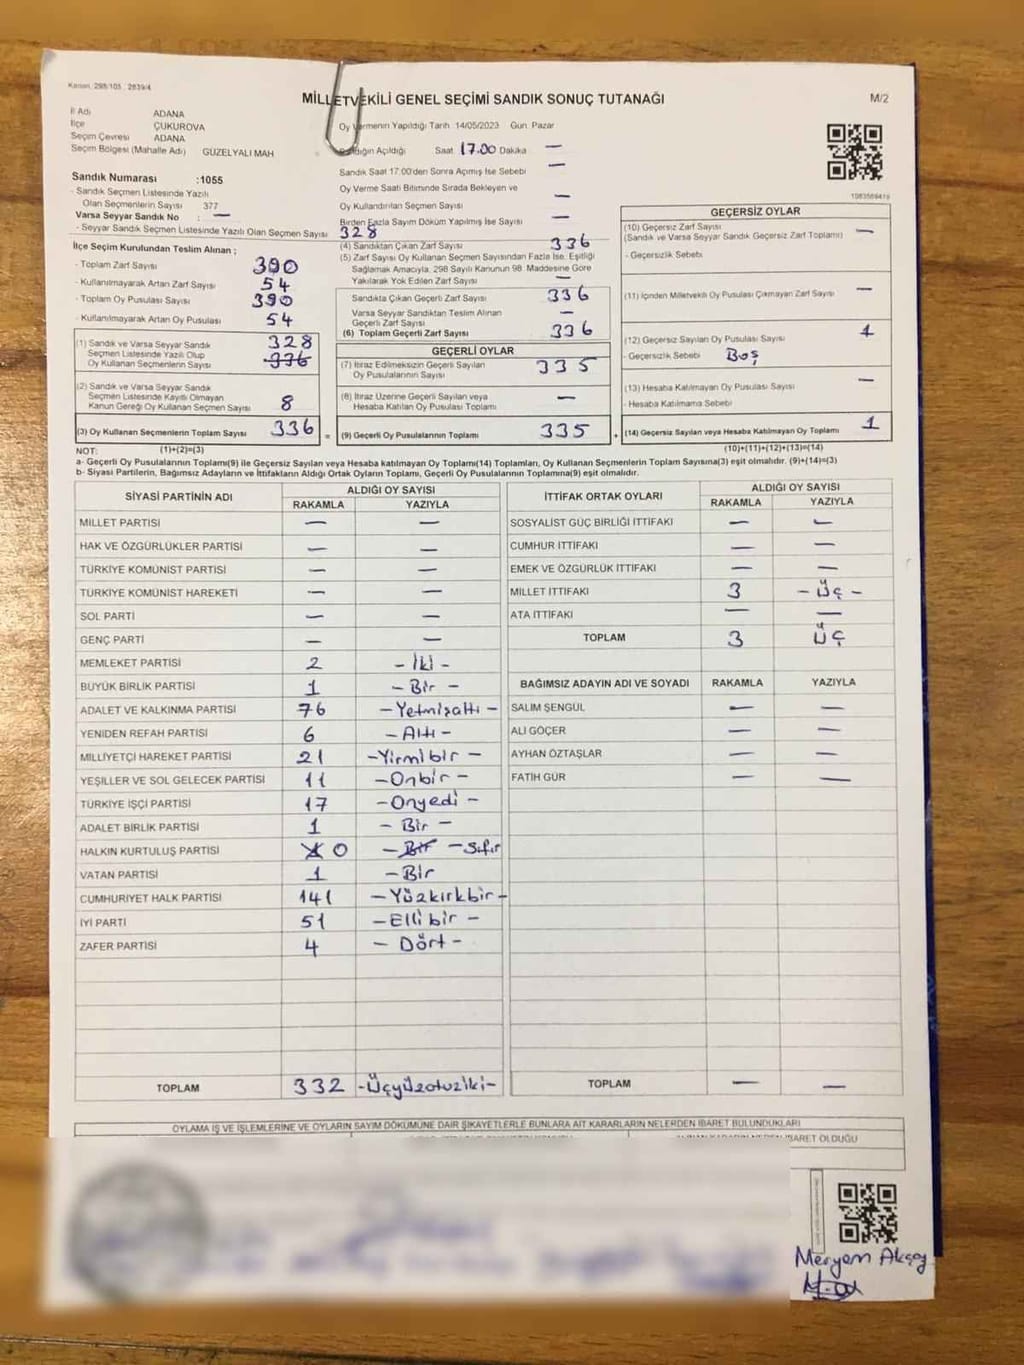 Kanun: 298/105, 2839/4
MİLLETVEKİLİ GENEL SEÇİMİ SANDIK SONUÇ TUTANAĞI
M/2
İl Adı ADANA
İlçe ÇUKUROVA
Seçim Çevresi ADANA
Seçim Bölgesi (Mahalle Adı) GÜZELYALI MAH
Sandık Numarası :1055
- Sandık Seçmen Listesinde Yazılı
Olan Seçmenlerin Sayısı 377
Varsa Seyyar Sandık No : —
- Seyyar Sandık Seçmen Listesinde Yazılı Olan Seçmen Sayısı
İlçe Seçim Kurulundan Teslim Alınan ;
- Toplam Zarf Sayısı 390
- Kullanılmayarak Artan Zarf Sayısı 54
- Toplam Oy Pusulası Sayısı 390
- Kullanılmayarak Artan Oy Pusulası 54
(1) Sandık ve Varsa Seyyar Sandık
Seçmen Listesinde Yazılı Olup
Oy Kullanan Seçmenlerin Sayısı 328 336
(2) Sandık ve Varsa Seyyar Sandık
Seçmen Listesinde Kayıtlı Olmayan
Kanun Gereği Oy Kullanan Seçmen Sayısı 8
(3) Oy Kullanan Seçmenlerin Toplam Sayısı 336 =
Oy Vermenin Yapıldığı Tarih 14/05/2023 Gün: Pazar
Sandığın Açıldığı Saat 17.00 Dakika —
Sandık Saat 17:00'den Sonra Açılmış İse Sebebi —
Oy Verme Saati Bitiminde Sırada Bekleyen ve
Oy Kullandırılan Seçmen Sayısı —
Birden Fazla Sayım Döküm Yapılmış İse Sayısı —
328
(4) Sandıktan Çıkan Zarf Sayısı 336
(5) Zarf Sayısı Oy Kullanan Seçmen Sayısından Fazla İse, Eşitliği
Sağlamak Amacıyla, 298 Sayılı Kanunun 98. Maddesine Göre
Yakılarak Yok Edilen Zarf Sayısı —
Sandıkta Çıkan Geçerli Zarf Sayısı 336
Varsa Seyyar Sandıktan Teslim Alınan
Geçerli Zarf Sayısı —
(6) Toplam Geçerli Zarf Sayısı 336
GEÇERLİ OYLAR
(7) İtiraz Edilmeksizin Geçerli Sayılan
Oy Pusulalarının Sayısı 335
(8) İtiraz Üzerine Geçerli Sayılan veya
Hesaba Katılan Oy Pusulası Toplamı —
(9) Geçerli Oy Pusulalarının Toplamı 335 +
1083569419
GEÇERSİZ OYLAR
(10) Geçersiz Zarf Sayısı
(Sandık ve Varsa Seyyar Sandık Geçersiz Zarf Toplamı) —
- Geçersizlik Sebebi
(11) İçinden Milletvekili Oy Pusulası Çıkmayan Zarf Sayısı —
(12) Geçersiz Sayılan Oy Pusulası Sayısı 1
- Geçersizlik Sebebi Boş
(13) Hesaba Katılmayan Oy Pusulası Sayısı —
- Hesaba Katılmama Sebebi
(14) Geçersiz Sayılan veya Hesaba Katılmayan Oy Toplamı 1
NOT: (1)+(2)=(3) (10)+(11)+(12)+(13)=(14)
a- Geçerli Oy Pusulalarının Toplamı(9) ile Geçersiz Sayılan veya Hesaba katılmayan Oy Toplamı(14) Toplamları, Oy Kullanan Seçmenlerin Toplam Sayısına(3) eşit olmalıdır. (9)+(14)=(3)
b- Siyasi Partilerin, Bağımsız Adayların ve İttifakların Aldığı Ortak Oyların Toplamı, Geçerli Oy Pusulalarının Toplamına(9) eşit olmalıdır.
SİYASİ PARTİNİN ADI ALDIĞI OY SAYISI
RAKAMLA YAZIYLA
MİLLET PARTİSİ — —
HAK VE ÖZGÜRLÜKLER PARTİSİ — —
TÜRKİYE KOMÜNİST PARTİSİ — —
TÜRKİYE KOMÜNİST HAREKETİ — —
SOL PARTİ — —
GENÇ PARTİ — —
MEMLEKET PARTİSİ 2 - İki -
BÜYÜK BİRLİK PARTİSİ 1 - Bir -
ADALET VE KALKINMA PARTİSİ 76 - Yetmişaltı -
YENİDEN REFAH PARTİSİ 6 - Altı -
MİLLİYETÇİ HAREKET PARTİSİ 21 - Yirmibir -
YEŞİLLER VE SOL GELECEK PARTİSİ 11 - Onbir -
TÜRKİYE İŞÇİ PARTİSİ 17 - Onyedi -
ADALET BİRLİK PARTİSİ 1 - Bir -
HALKIN KURTULUŞ PARTİSİ 0 - Bir - Sıfır
VATAN PARTİSİ 1 - Bir
CUMHURİYET HALK PARTİSİ 141 - Yüzkırkbir -
İYİ PARTİ 51 - Ellibir -
ZAFER PARTİSİ 4 - Dört -
TOPLAM 332 - Üçyüzotuziki -
İTTİFAK ORTAK OYLARI ALDIĞI OY SAYISI
RAKAMLA YAZIYLA
SOSYALİST GÜÇ BİRLİĞİ İTTİFAKI — —
CUMHUR İTTİFAKI — —
EMEK VE ÖZGÜRLÜK İTTİFAKI — —
MİLLET İTTİFAKI 3 - Üç -
ATA İTTİFAKI — —
TOPLAM 3 Üç
BAĞIMSIZ ADAYIN ADI VE SOYADI RAKAMLA YAZIYLA
SALİM ŞENGÜL — —
ALİ GÖÇER — —
AYHAN ÖZTAŞLAR — —
FATİH GÜR — —
TOPLAM — —
OYLAMA İŞ VE İŞLEMLERİNE VE OYLARIN SAYIM DÖKÜMÜNE DAİR ŞİKAYETLERLE BUNLARA AİT KARARLARIN NELERDEN İBARET BULUNDUKLARI
İBARET OLDUĞU
Meryem Aksoy